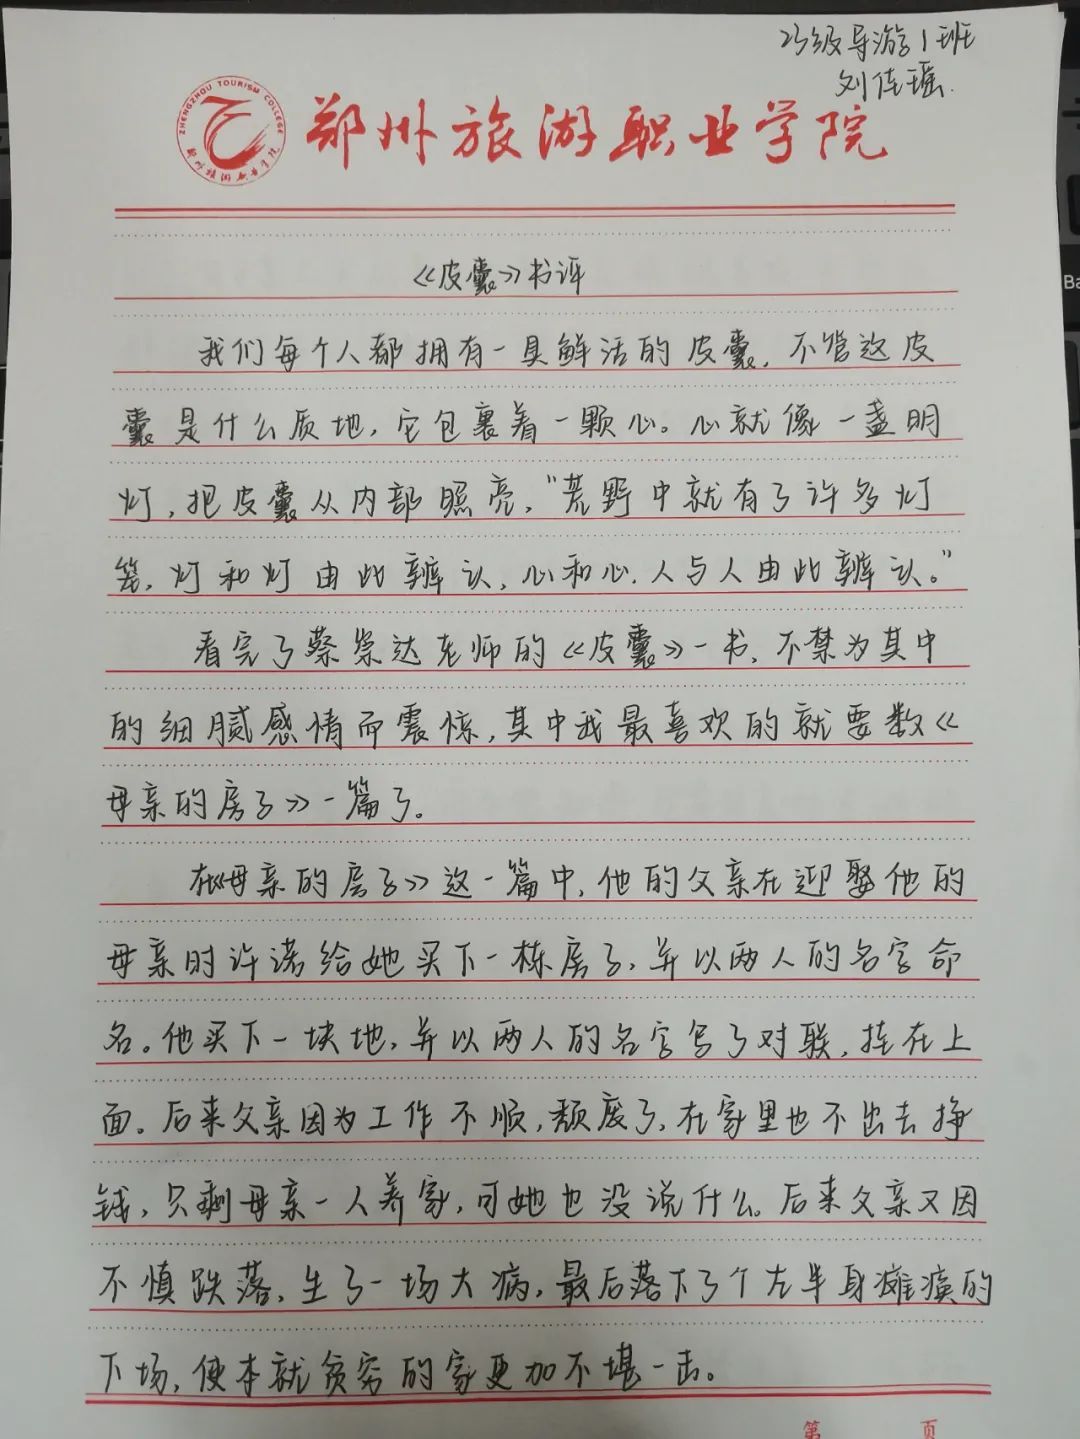 23级导游1班
刘佳瑶
ZHENGZHOU TOURISM COLLEGE
郑州旅游职业学院
郑州旅游职业学院
《皮囊》书评
我们每个人都拥有一具鲜活的皮囊，不管这皮
囊是什么质地，它包裹着一颗心。心就像一盏明
灯，把皮囊从内部照亮，“荒野中就有了许多灯
笼，灯和灯由此辨认，心和心，人与人由此辨认。”
看完了蔡崇达老师的《皮囊》一书，不禁为其中
的细腻感情而震惊，其中我最喜欢的就要数《
母亲的房子》一篇了。
在《母亲的房子》这一篇中，他的父亲在迎娶他的
母亲时许诺给她买下一栋房子，并以两人的名字命
名。他买下一块地，并以两人的名字写了对联，挂在上
面。后来父亲因为工作不顺，颓废了，在家里也不出去挣
钱，只剩母亲一人养家，可她也没说什么。后来父亲又因
不慎跌落，生了一场大病，最后落下了个左半身瘫痪的
下场，使本就贫穷的家更加不堪一击。
第 页
Ba